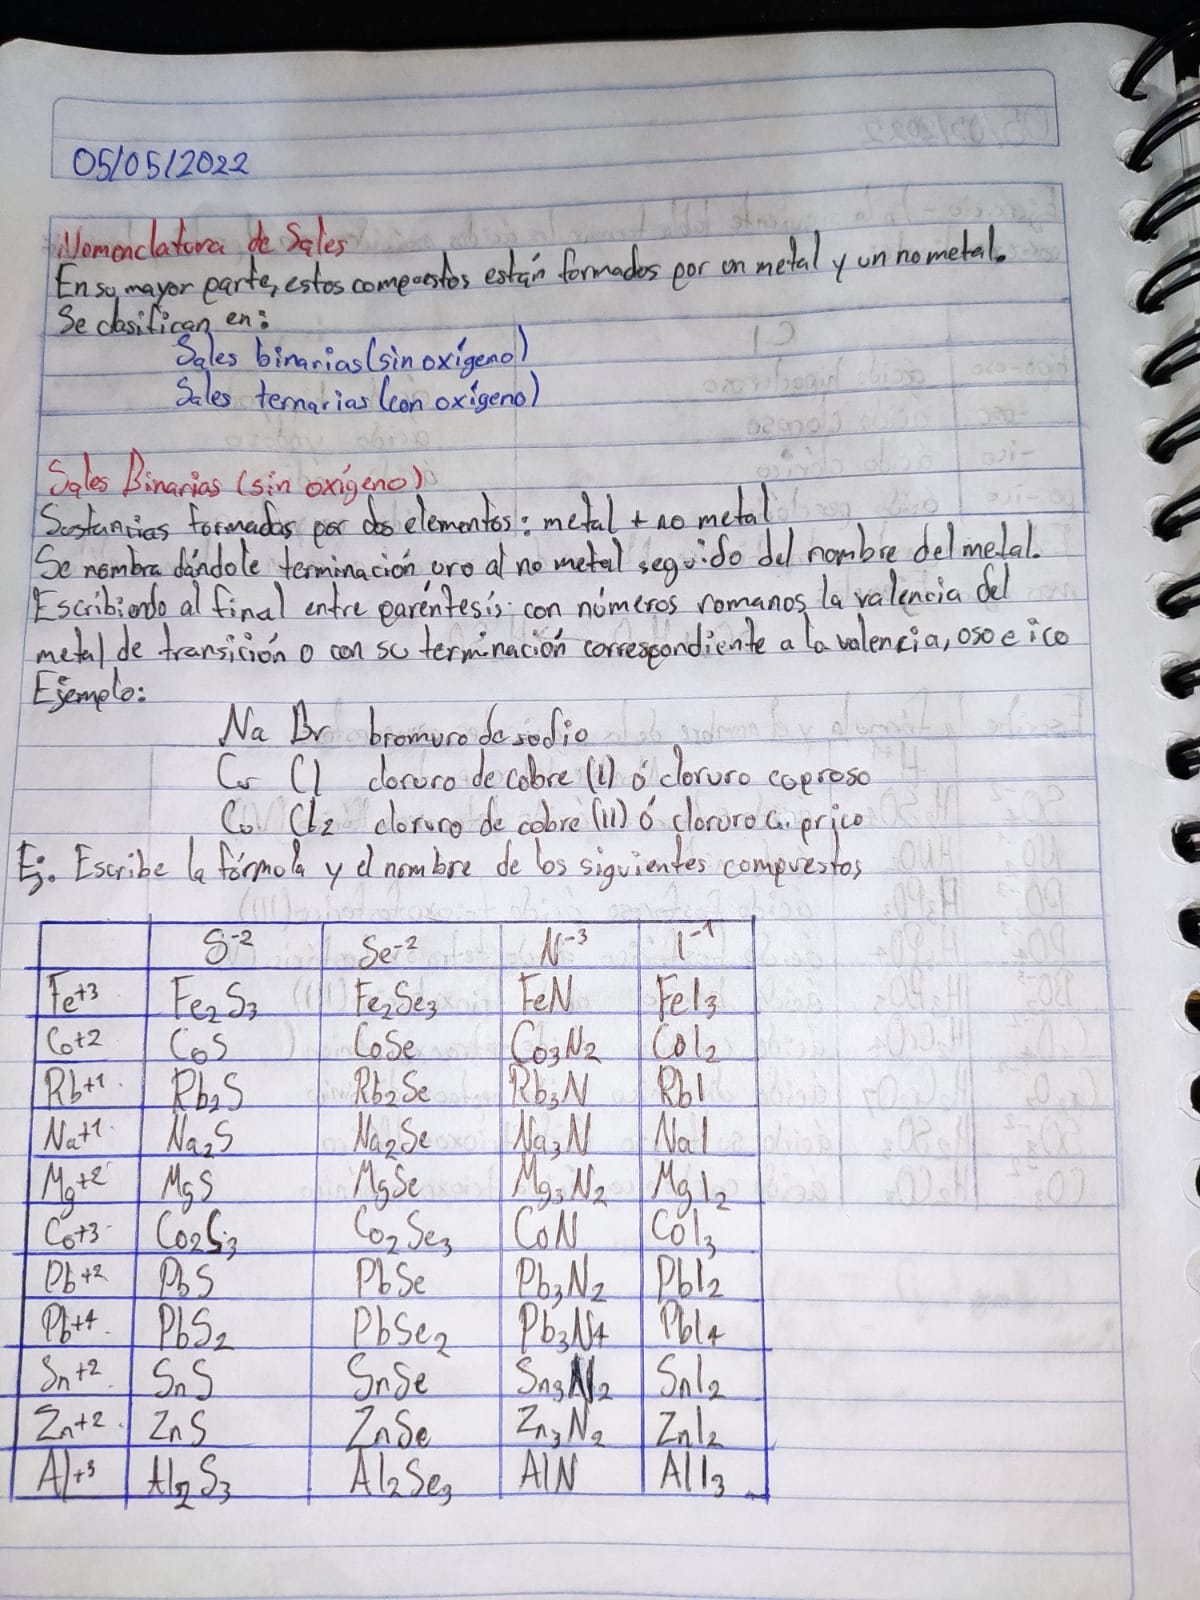 05/05/2022
Nomenclatura de Sales
En su mayor parte, estos compuestos están formados por un metal y un no metal.
Se clasifican en:
Sales binarias (sin oxígeno)
Sales ternarias (con oxígeno)
Sales Binarias (sin oxígeno)
Sustancias formadas por dos elementos: metal + no metal
Se nombra dándole terminación uro al no metal seguido del nombre del metal.
Escribiendo al final entre paréntesis con números romanos la valencia del
metal de transición o con su terminación correspondiente a la valencia, oso e ico
Ejemplo:
Na Br bromuro de sodio
Cu Cl cloruro de cobre (I) ó cloruro cuproso
Cu Cl₂ cloruro de cobre (II) ó cloruro cuprico
Ej. Escribe la fórmula y el nombre de los siguientes compuestos
S⁻² Se⁻² N⁻³ I⁻¹
Fe+3 Fe₂S₃ Fe₂Se₃ FeN FeI₃
Co+2 CoS CoSe Co₃N₂ CoI₂
Rb+1 Rb₂S Rb₂Se Rb₃N RbI
Na+1 Na₂S Na₂Se Na₃N NaI
Mg+2 MgS MgSe Mg₃N₂ MgI₂
Co+3 Co₂S₃ Co₂Se₃ CoN CoI₃
Pb+2 PbS PbSe Pb₃N₂ PbI₂
Pb+4 PbS₂ PbSe₂ Pb₃N₄ PbI₄
Sn+2 SnS SnSe Sn₃N₂ SnI₂
Zn+2 ZnS ZnSe Zn₃N₂ ZnI₂
Al+3 Al₂S₃ Al₂Se₃ AlN AlI₃